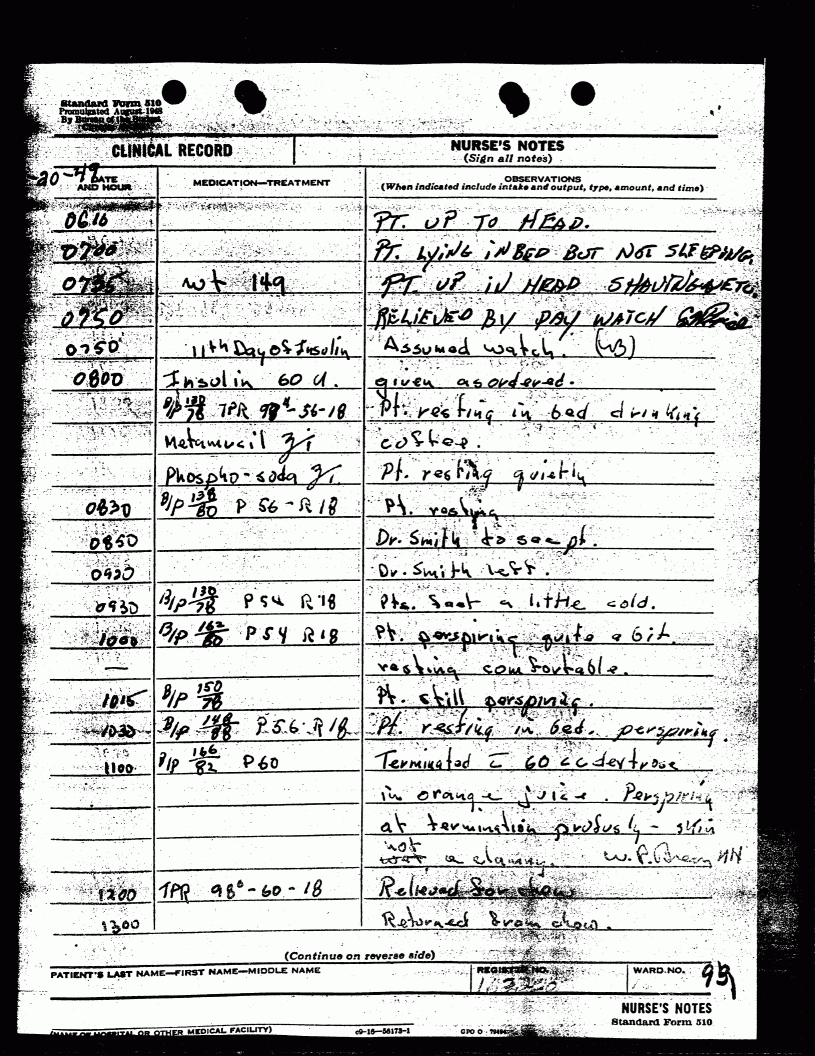 Standard Form 510
Promulgated August 1948
By Bureau of the Budget
CLINICAL RECORD
NURSE'S NOTES
(Sign all notes)
20-49 DATE AND HOUR
MEDICATION—TREATMENT
OBSERVATIONS
(When indicated include intake and output, type, amount, and time)
0610 PT. UP TO HEAD.
0700 PT. LYING IN BED BUT NOT SLEEPING.
0735 wt 149 PT. UP IN HEAD SHAVING ETC.
0750 RELIEVED BY DAY WATCH
0750 11th Day Of Insulin Assumed watch.
0800 Insulin 60 U. given as ordered.
B/P 130/78 TPR 98⁴-56-18 Pt. resting in bed drinking
Metamucil ʒ/i coffee.
Phospho-soda ʒ/i. Pt. resting quietly
0830 B/P 138/80 P 56 - R 18 Pt. resting
0850 Dr. Smith to see pt.
0920 Dr. Smith left.
0930 B/P 130/78 P 54 R 18 Pts. feet a little cold.
1000 B/P 162/80 P 54 R 18 Pt. perspiring quite a bit.
— resting comfortable.
1015 B/P 150/78 Pt. still perspiring.
1030 B/P 148/88 P 56 R 18 Pt. resting in bed. perspiring.
1100 B/P 166/82 P 60 Terminated c̄ 60 cc dextrose
in orange juice. Perspiring
at termination profusly - skin
not
wet, a clammy.
1200 TPR 98⁶-60-18 Relieved for chow
1300 Returned from chow.
(Continue on reverse side)
PATIENT'S LAST NAME—FIRST NAME—MIDDLE NAME
REGISTER NO.
WARD NO.
(NAME OF HOSPITAL OR OTHER MEDICAL FACILITY)
c9-16—56173-1
GPO
NURSE'S NOTES
Standard Form 510